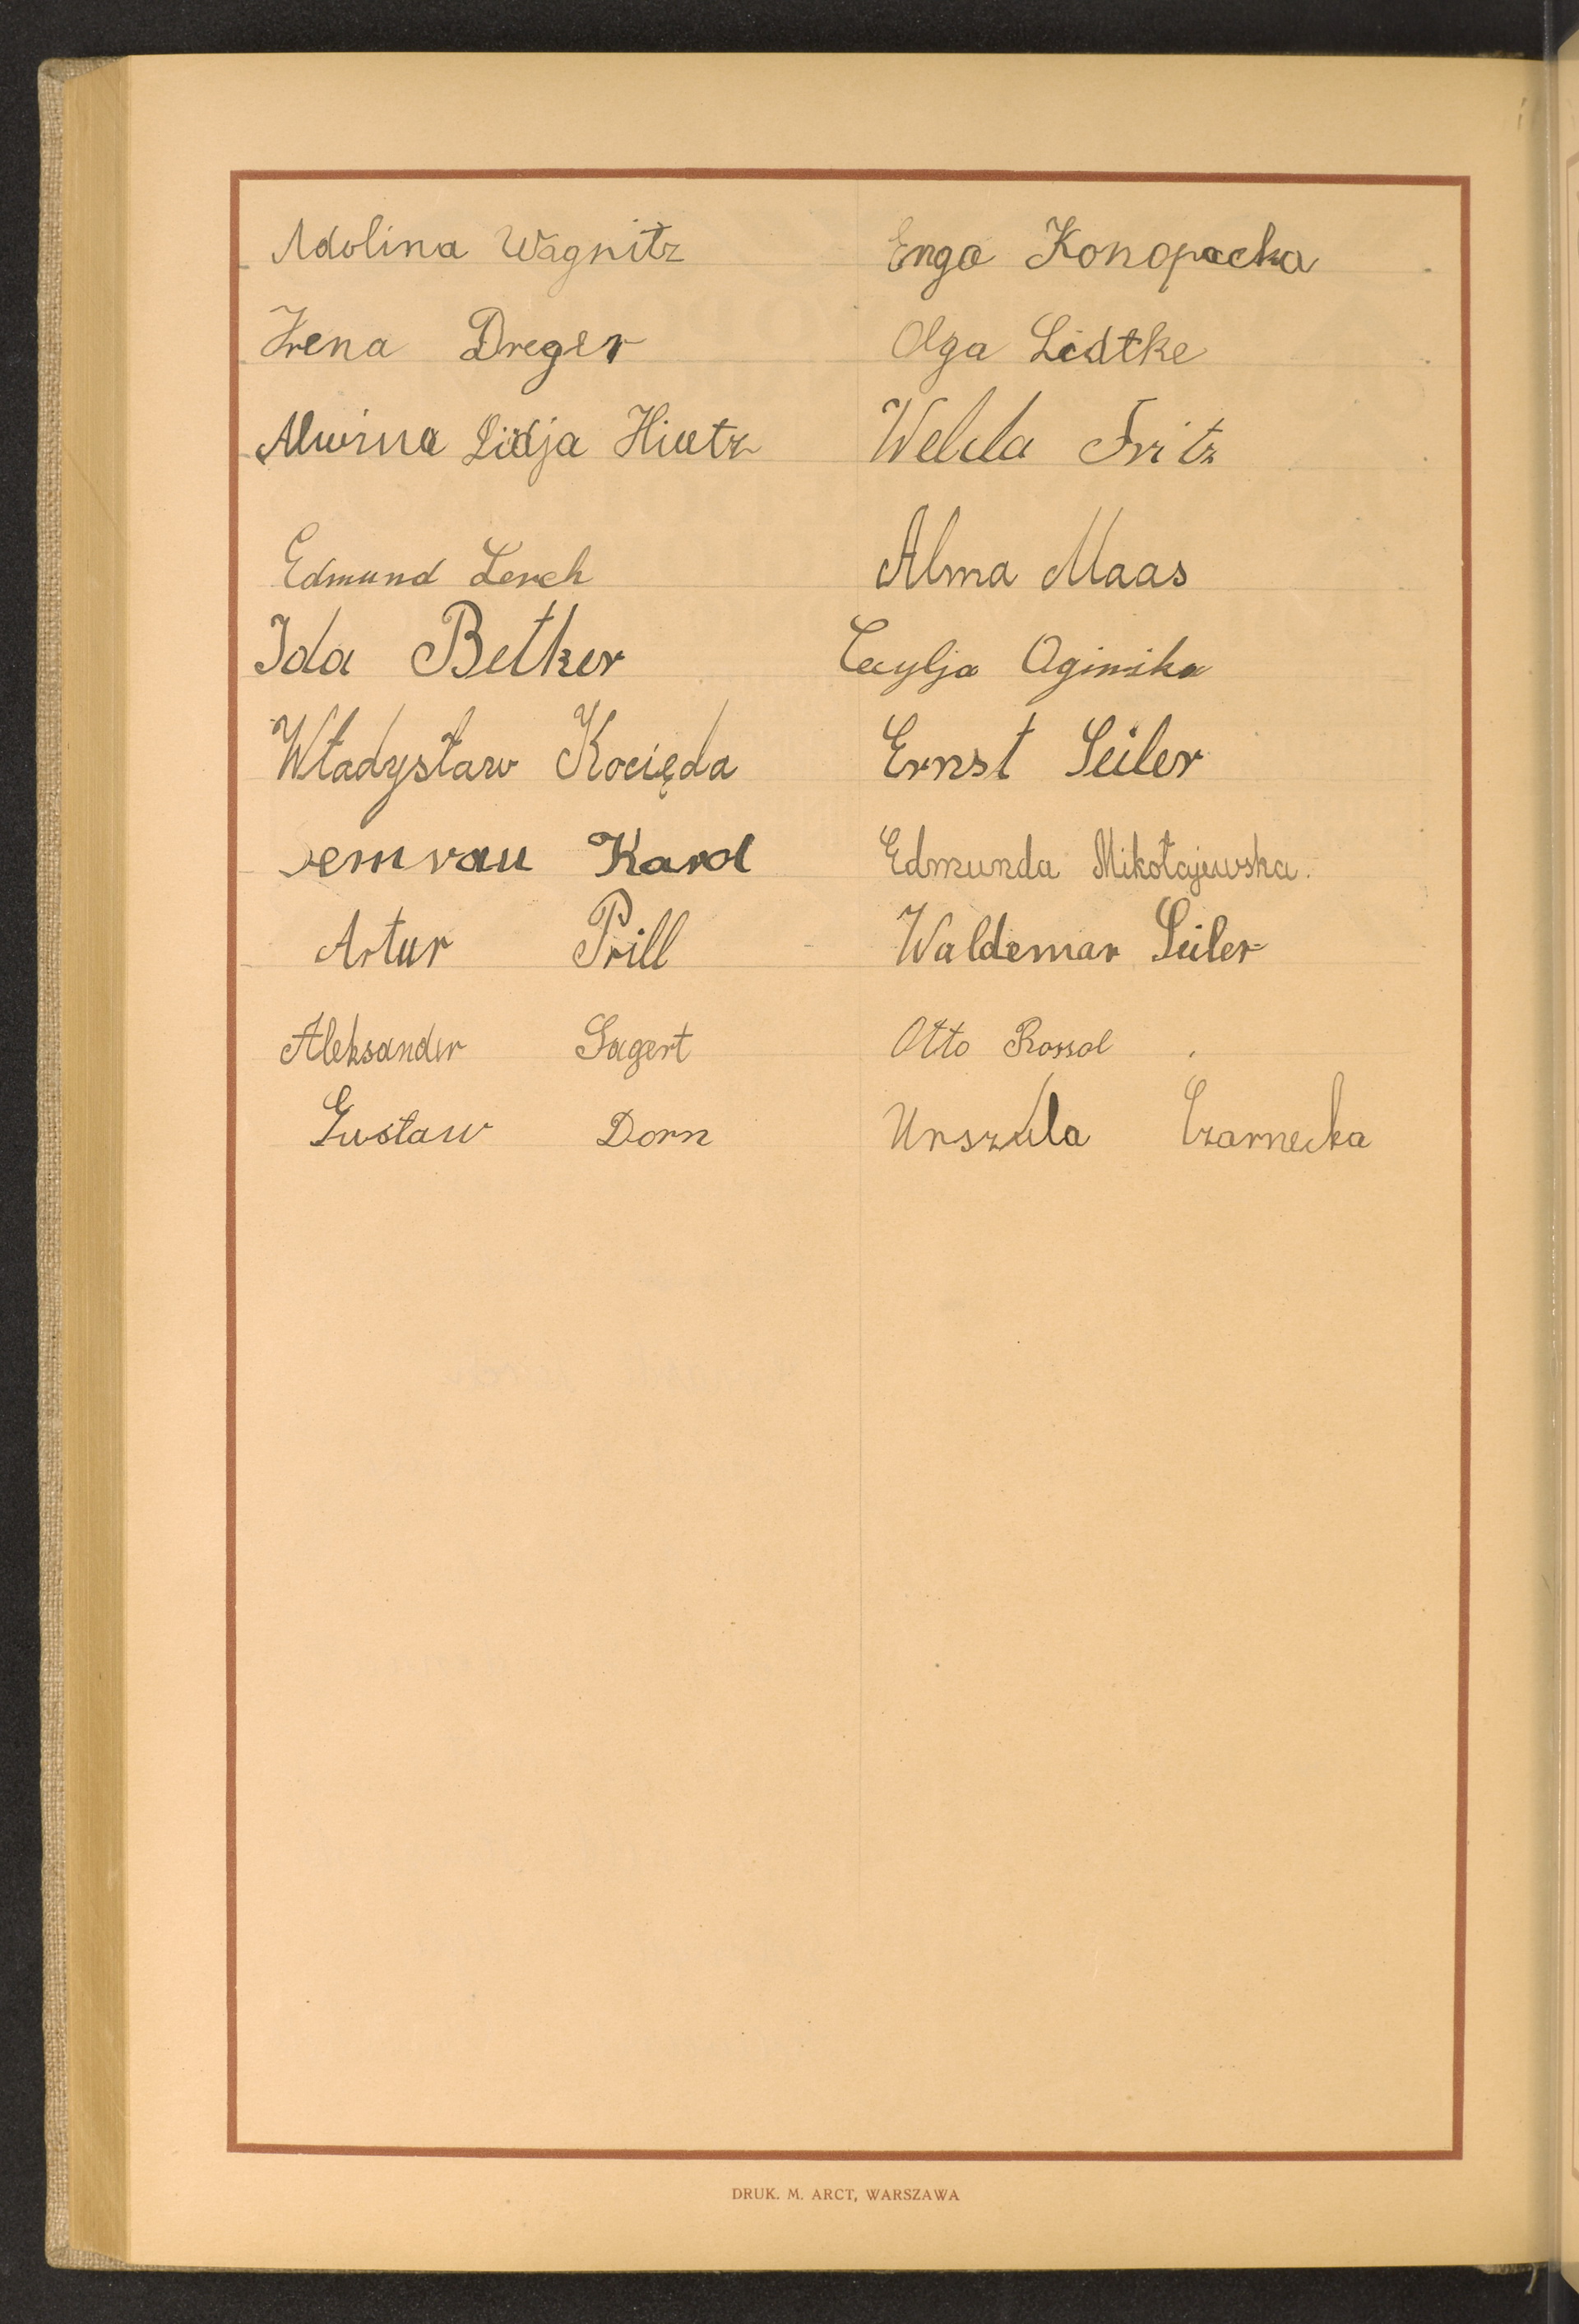 Adolina Wagnitz
Irena Dreger
Alwina Lidja Hintz
Edmund Lerch
Ida Betker
Władysław Kocięda
Semrau Karol
Artur Prill
Aleksander Sagert
Gustaw Dorn
Enga Konopacka
Olga Lidtke
Welda Fritz
Alma Maas
Cecylja
Ernst Seiler
Edmunda Mikołajewska.
Waldemar Seiler
Otto Rossol
Urszula Czarnecka
DRUK. M. ARCT, WARSZAWA